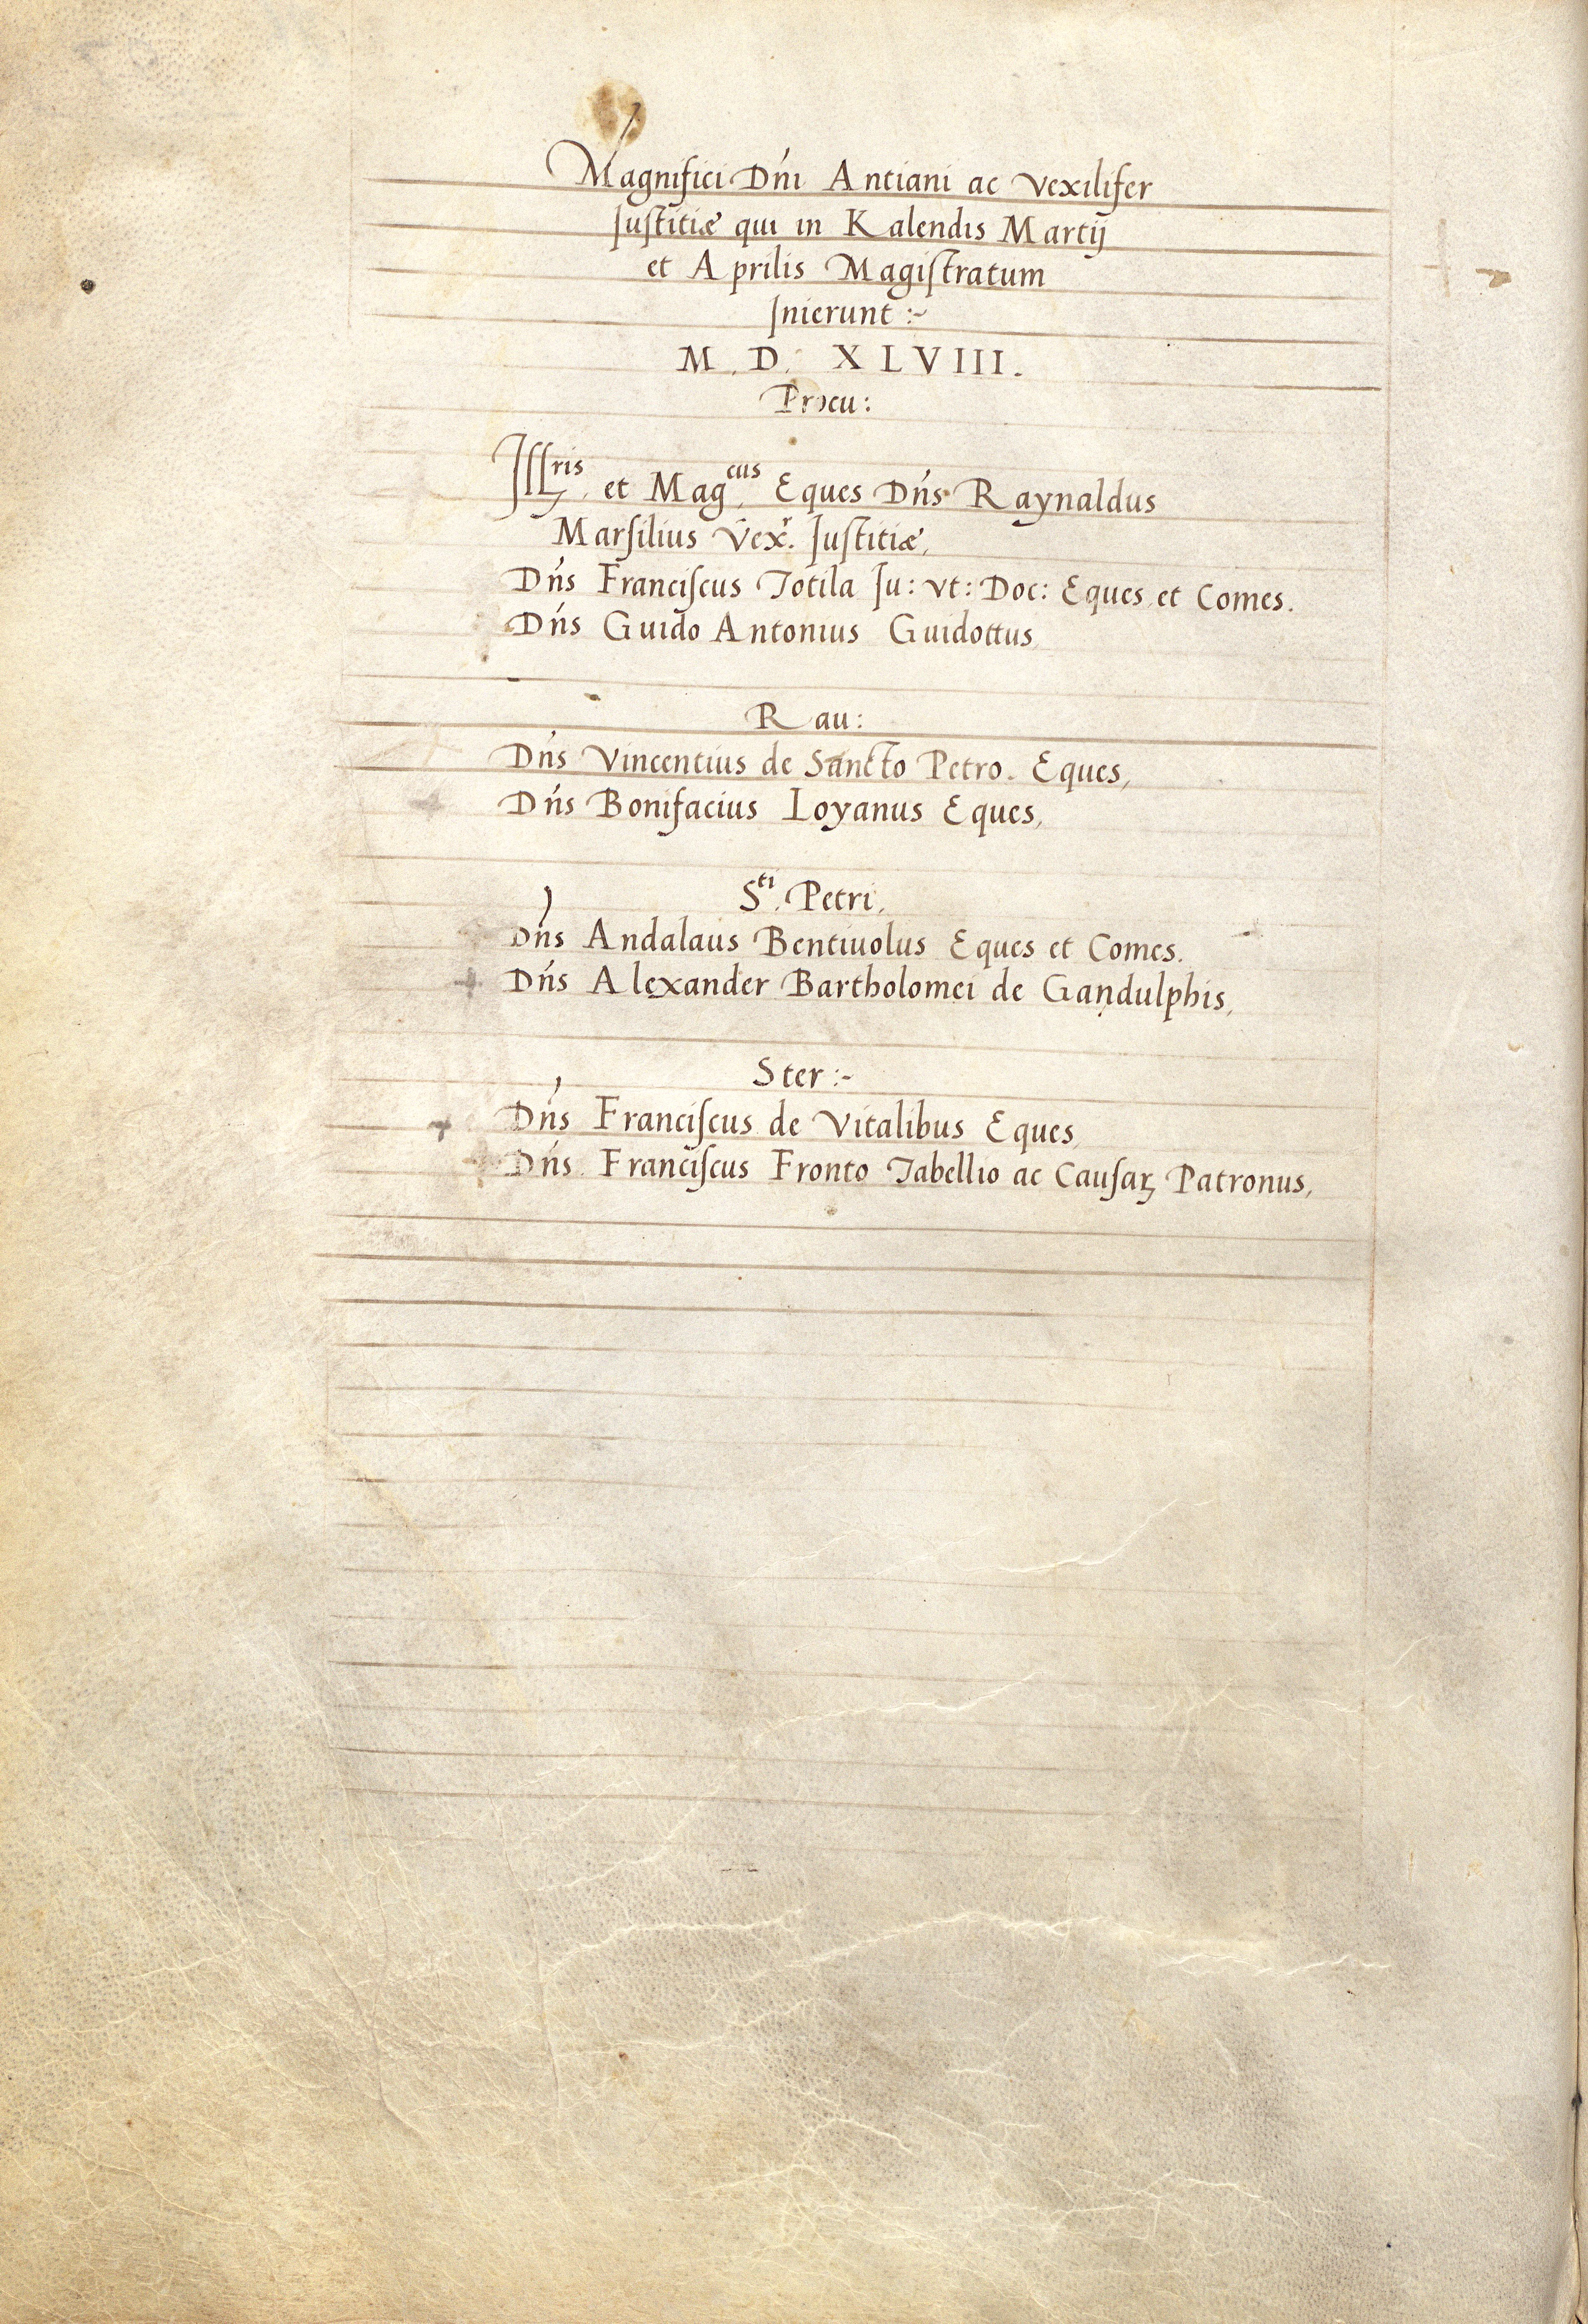 Magnifici Dńi Antiani ac Vexilifer
Iuſtitiæ qui in Kalendis Martij
et Aprilis Magiſtratum
Inierunt :~
M. D. XLVIII.
Procu:
Illris. et Magcus. Eques Dńs Raynaldus
Marſilius Vexr. Iuſtitiæ,
Dńs Franciſcus Totila Iu: vt: Doc: Eques et Comes.
Dńs Guido Antonius Guidottus
Rau:
Dńs Vincentius de Sancto Petro. Eques,
Dńs Bonifacius Loyanus Eques,
Sti. Petri,
Dńs Andalaus Bentiuolus Eques et Comes.
Dńs Alexander Bartholomei de Gandulphis,
Ster :~
Dńs Franciſcus de Vitalibus Eques
Dńs Franciſcus Fronto Tabellio ac Cauſaꝝ Patronus,